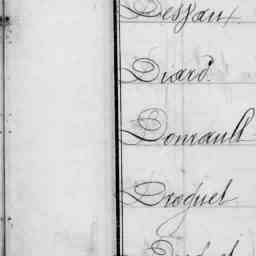 Dessaux
Diard
Donrault
Droguet